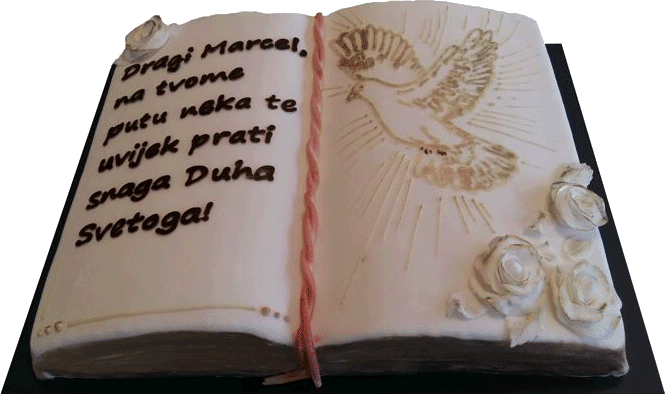 Dragi Marcel,
na tvome
putu neka te
uvijek prati
snaga Duha
Svetoga!